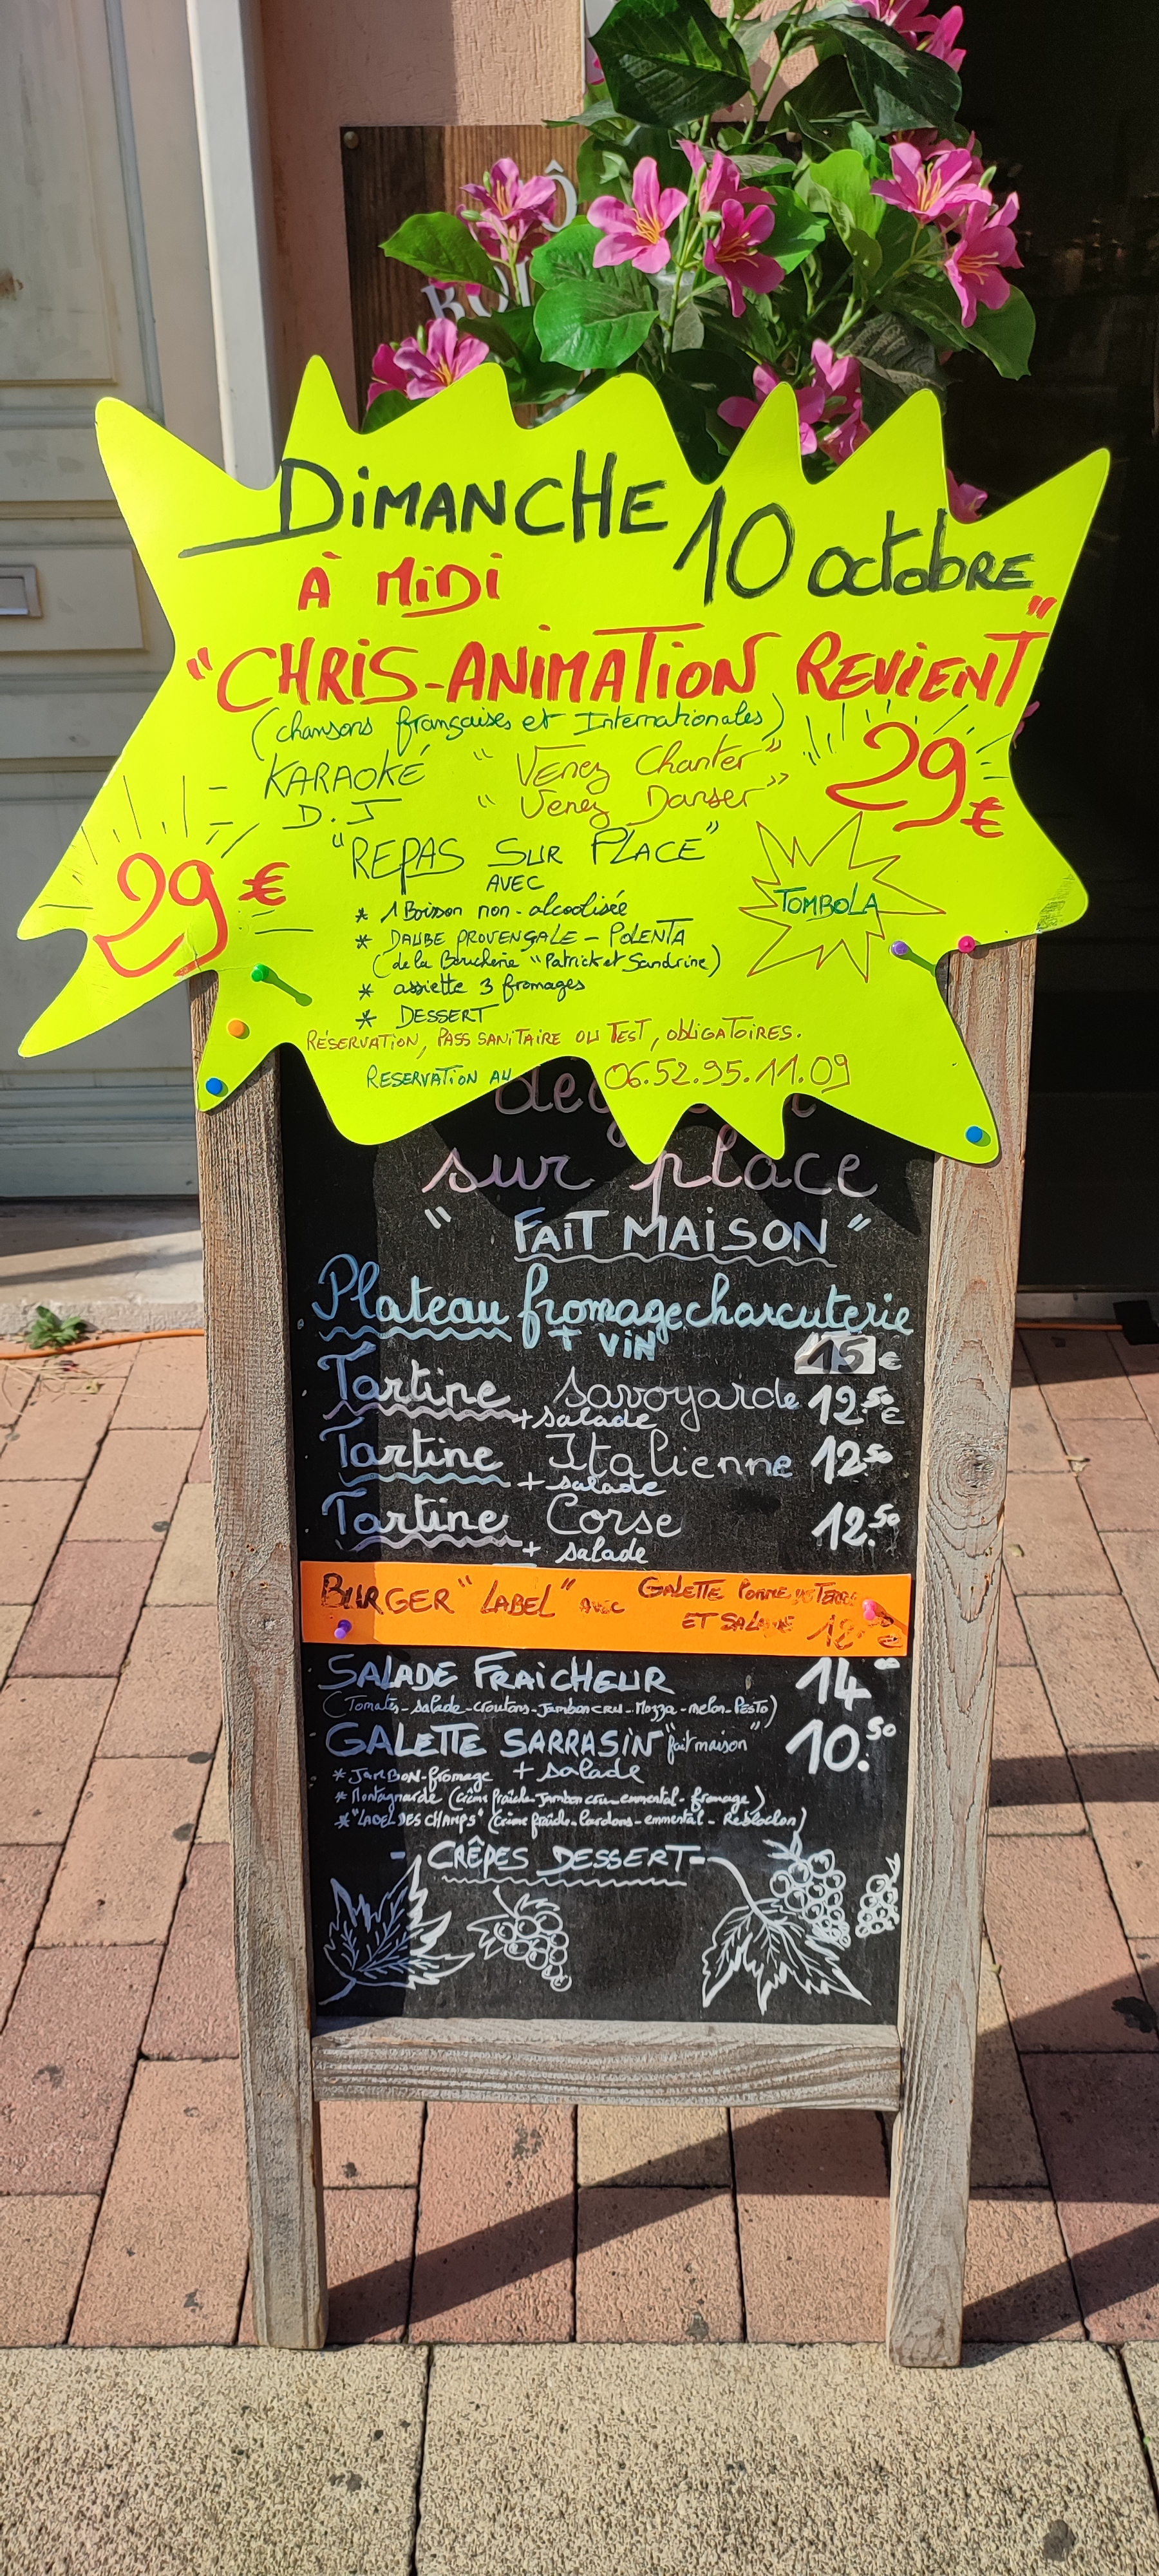 Ô
DiMANCHE 10 octobRE
À MiDi
"CHRiS-ANIMATiON REViENT"
(chansons françaises et Internationales)
KARAOKÉ "Venez Chanter"
D.J "Venez Danser"
29€
29€
"REPAS SUR PLACE"
AVEC
* 1 Boisson non-alcoolisée
TOMBOLA
* DAUBE PROVENÇALE - POLENTA
(de la Boucherie "Patrick et Sandrine)
* assiette 3 fromages
* DESSERT
RÉSERVATION, PASS SANITAIRE OU TEST, OBLIGATOIRES.
RESERVATION AU 06.52.95.11.09
sur place
"FAiT MAiSON"
Plateau fromage charcuterie
+ ViN 15 €
Tartine savoyarde 12.50 €
+ salade
Tartine Italienne 12.50
+ salade
Tartine Corse 12.50
+ salade
BURGER "LABEL" avec GALETTE POMME de TERRE
ET SALADE
SALADE FRAîCHEUR 14
(Tomates-salade-croutons-Jambon CRU-Mozza-melon-PESTO)
GALETTE SARRASiN "fait maison" 10.50
* JAMBON-fromage + salade
* Montagnarde (crème fraîche-Jambon cru-emmental-fromage)
* "LABEL DES CHAMPS" (crème fraîche-lardons-emmental-Reblochon)
- CRÊPES DESSERT -